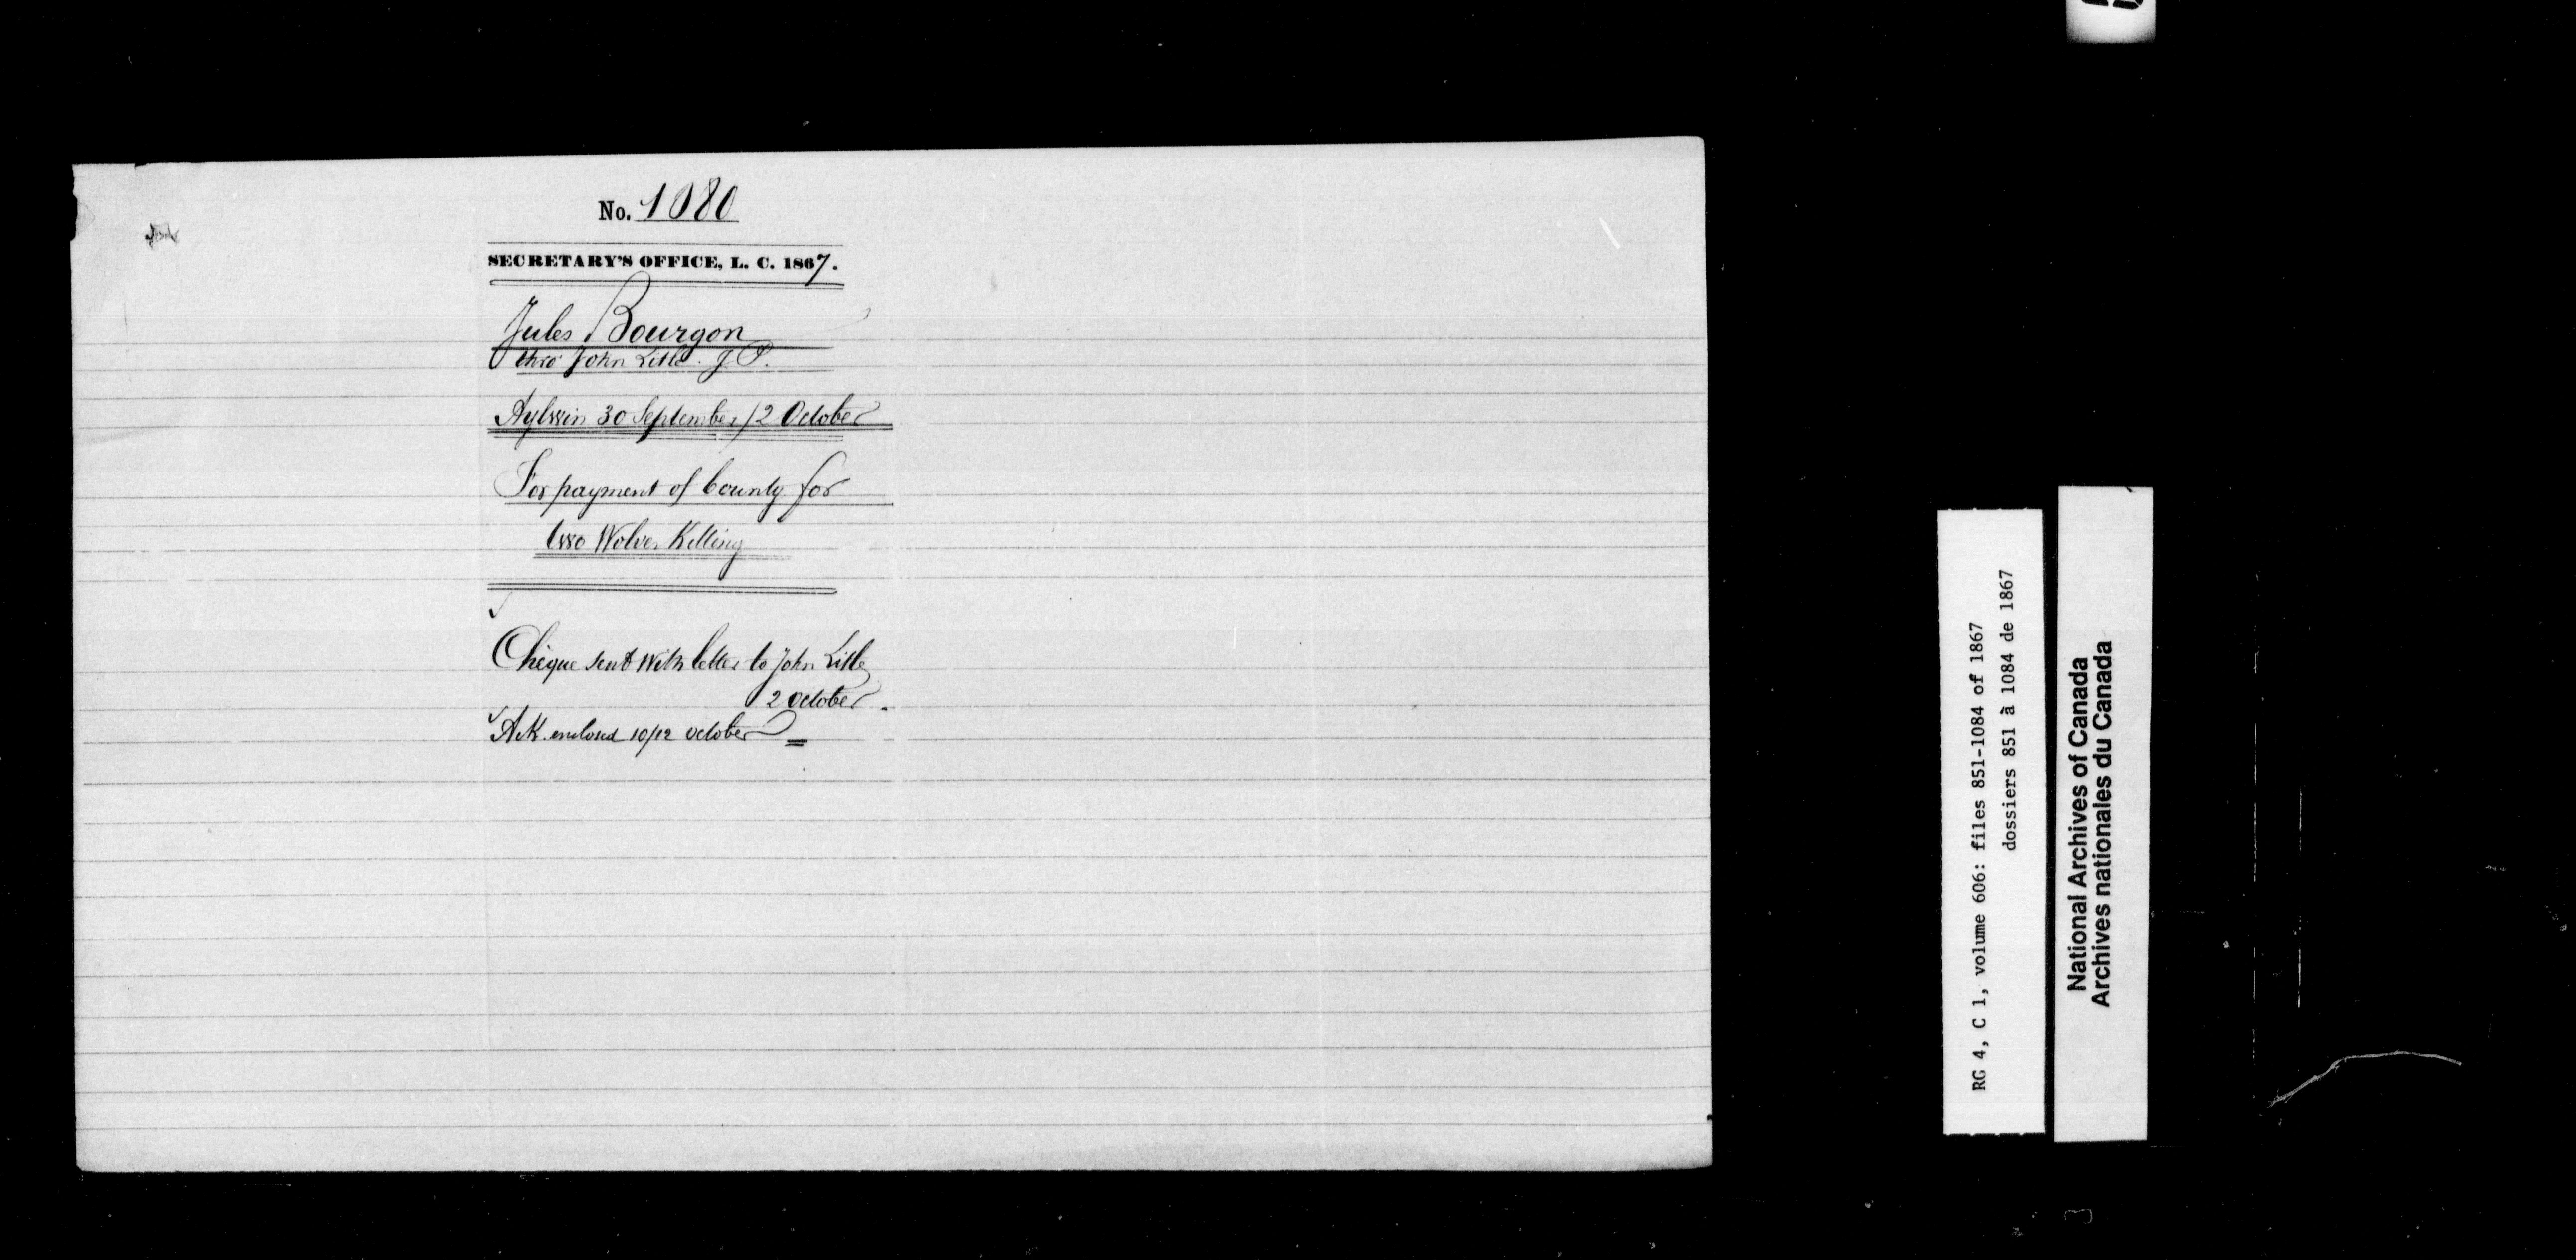 No. 1080
SECRETARY'S OFFICE, L. C. 1867.
Jules Bourgon
thro' John Litle J. P.
Aylwin 30 September / 2 October
For payment of bounty for
two Wolves Killing
Chèque sent with letter to John Litle
2 October.
Ack. enclosed 10/12 October
RG 4, C 1, volume 606: files 851-1084 of 1867
dossiers 851 à 1084 de 1867
National Archives of Canada
Archives nationales du Canada